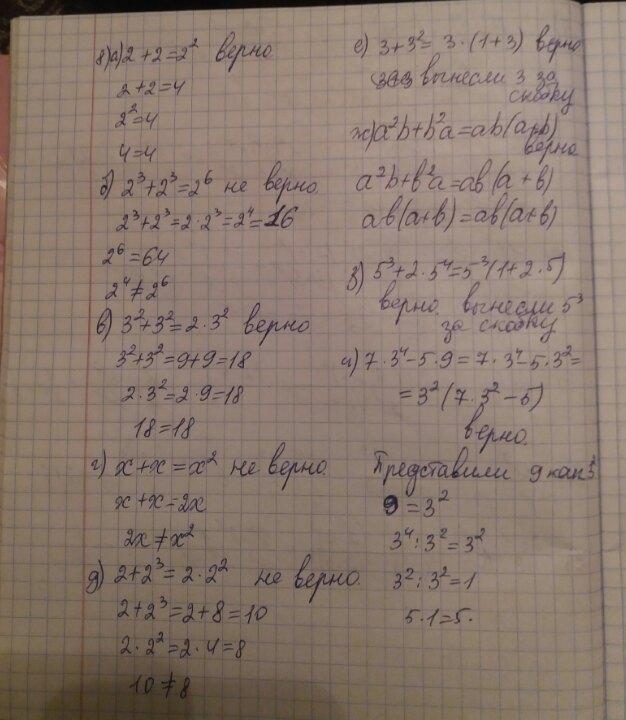 8) а) 2 + 2 = 2² верно
2 + 2 = 4
2² = 4
4 = 4
б) 2³ + 2³ = 2⁶ не верно
2³ + 2³ = 2 · 2³ = 2⁴ = 16
2⁶ = 64
2⁴ ≠ 2⁶
в) 3² + 3² = 2 · 3² верно
3² + 3² = 9 + 9 = 18
2 · 3² = 2 · 9 = 18
18 = 18
г) x + x = x² не верно
x + x = 2x
2x ≠ x²
д) 2 + 2³ = 2 · 2² не верно
2 + 2³ = 2 + 8 = 10
2 · 2² = 2 · 4 = 8
10 ≠ 8
е) 3 + 3² = 3 · (1 + 3) верно
вынесли 3 за
скобку
ж) a²b + b²a = ab(a+b)
верно
a²b + b²a = ab(a + b)
ab(a+b) = ab(a+b)
з) 5³ + 2 · 5⁴ = 5³(1 + 2 · 5)
верно. вынесли 5³
за скобку
и) 7 · 3⁴ - 5 · 9 = 7 · 3⁴ - 5 · 3² =
= 3² (7 · 3² - 5)
верно.
Представили 9 как 3²
9 = 3²
3⁴ : 3² = 3²
3² : 3² = 1
5 · 1 = 5.